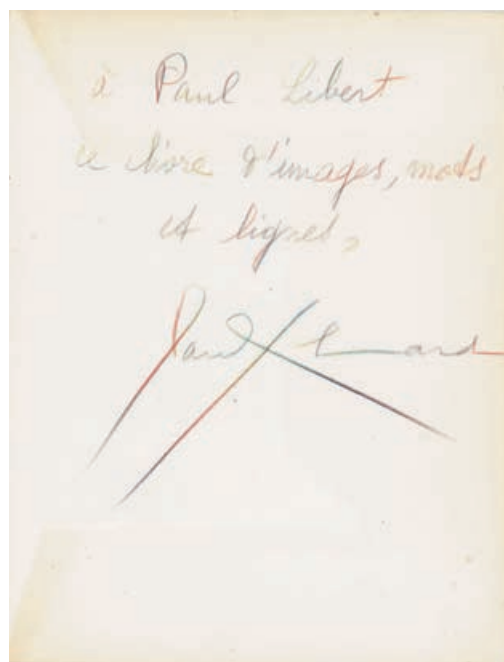 à Paul Libert
ce livre d'images, mots
et lignes,
Paul Eluard